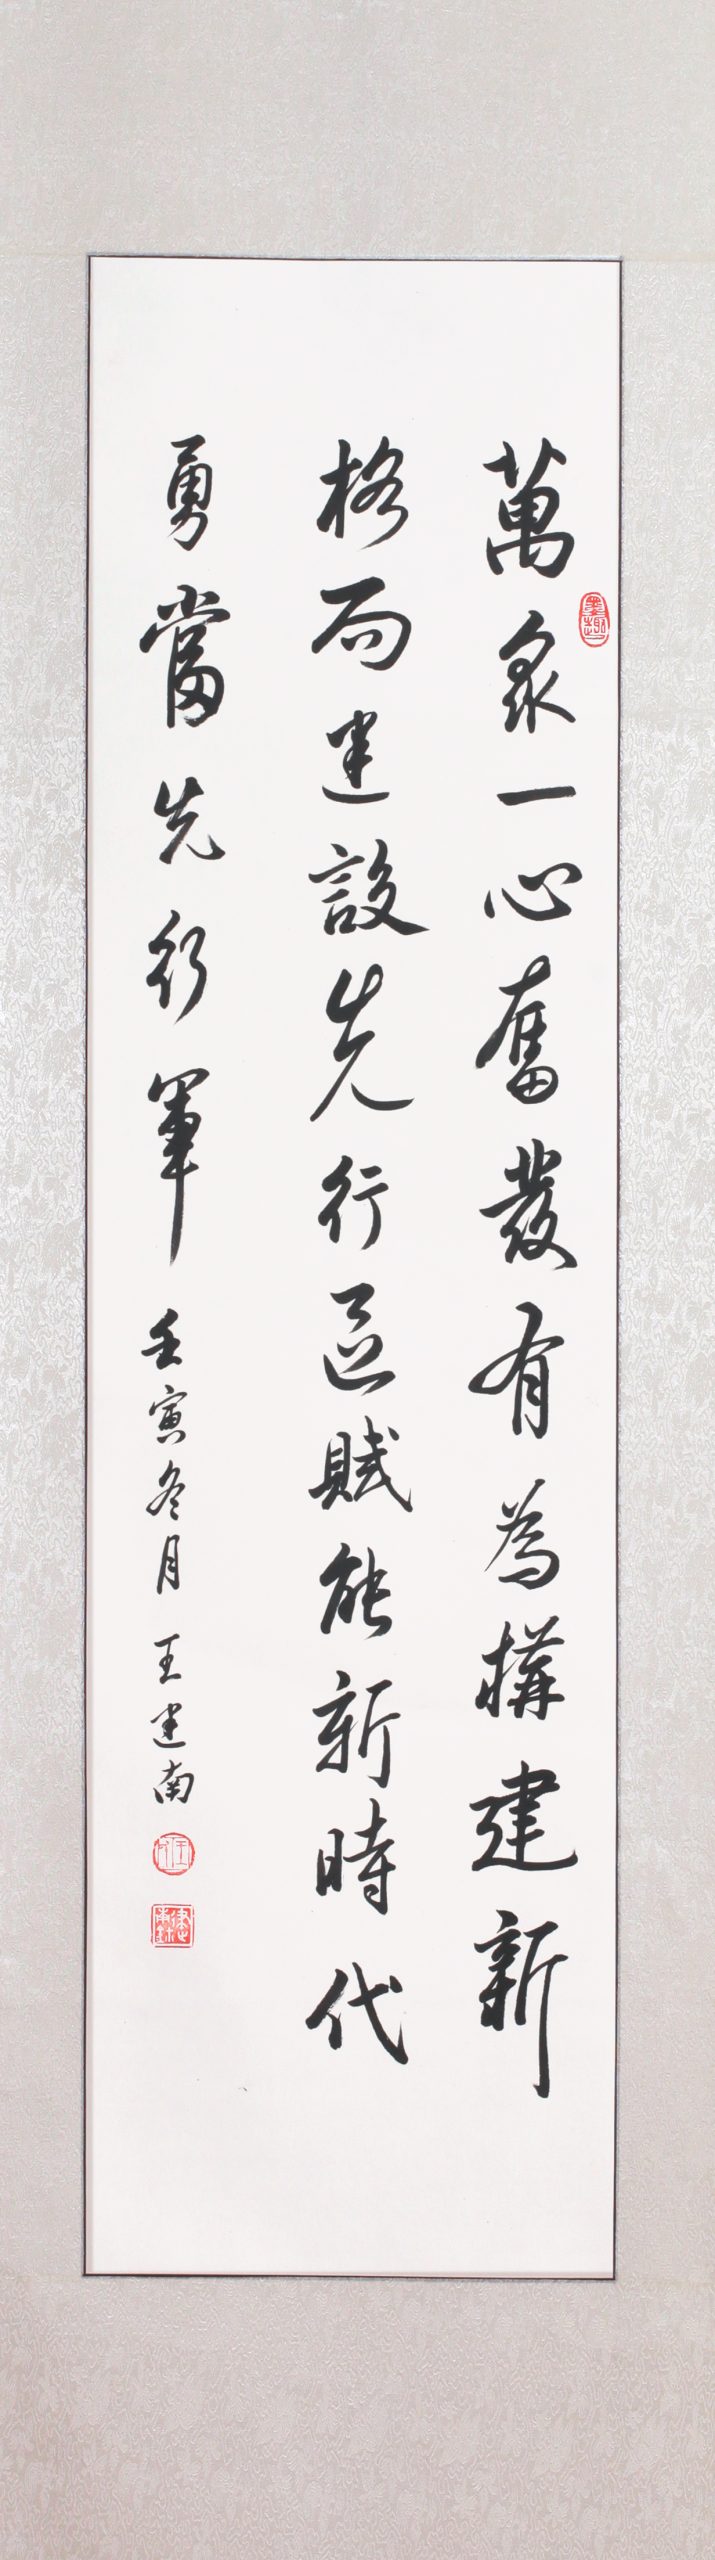 墨趣
萬衆一心奮發有為構建新
格局建設先行區賦能新時代
勇當先行軍 壬寅冬月 王建南